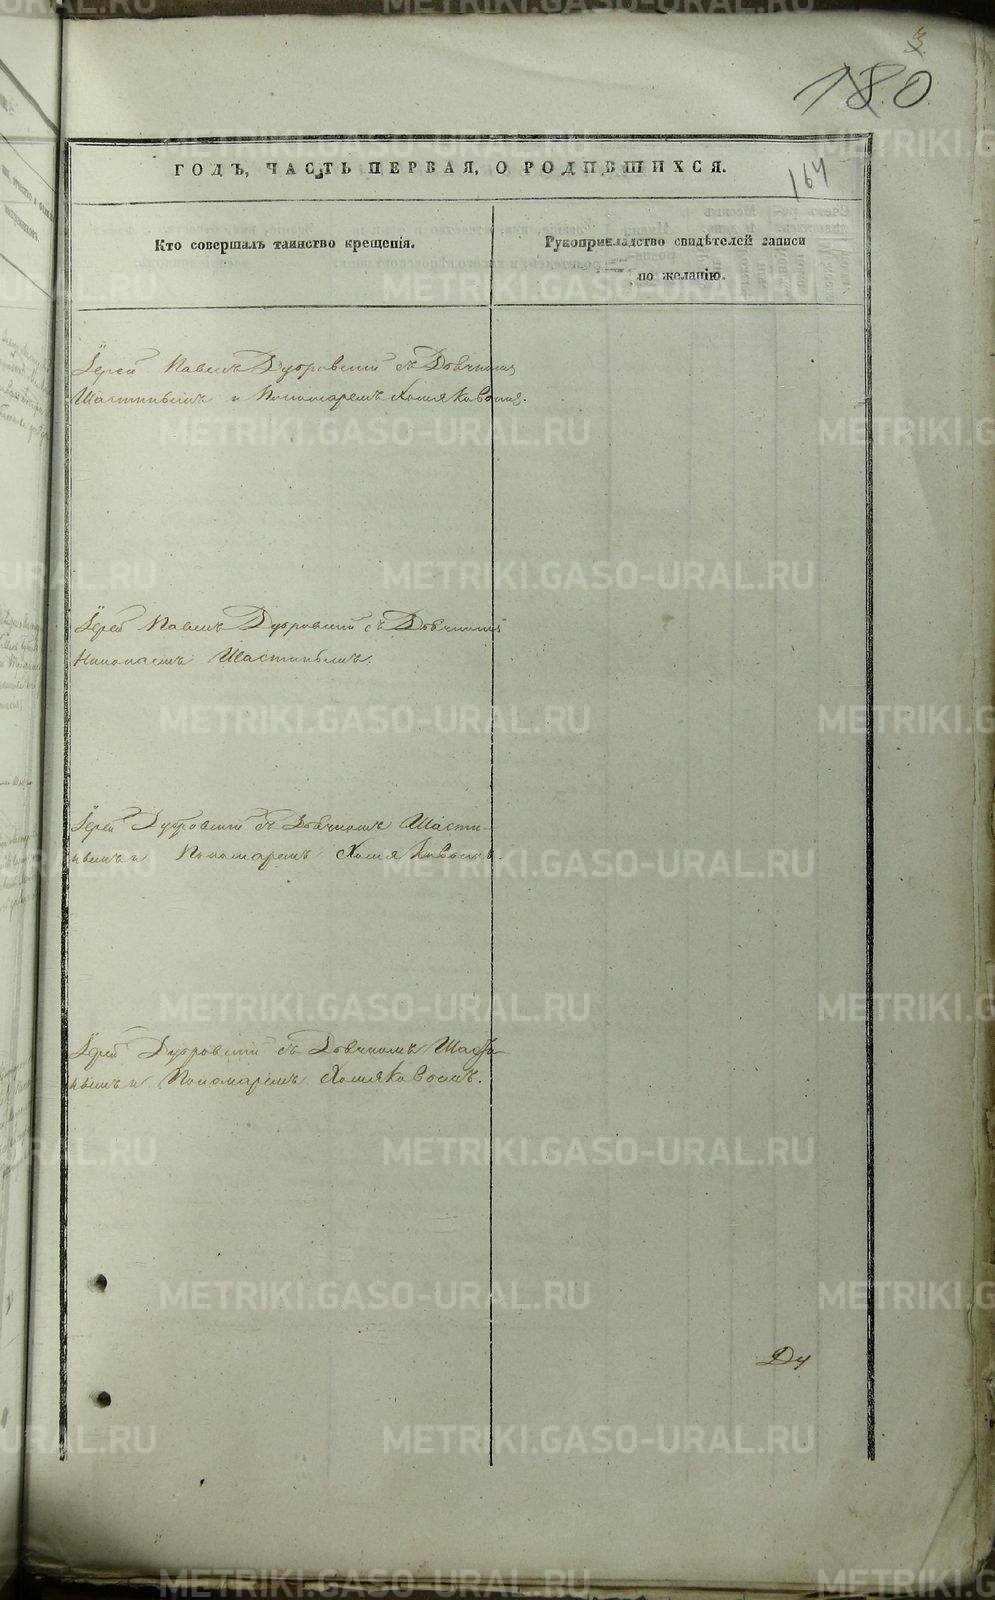 3.
180.
ГОДЪ, ЧАСТЬ ПЕРВАЯ, О РОДИВШИХСЯ.
164
Кто совершалъ таинство крещенія.
Рукоприкладство свидѣтелей записи
по желанію.
Іерей Павелъ Дубровскій съ Дьячкомъ
Шастинымъ и Пономаремъ Хомяковымъ.
Іерей Павелъ Дубровскій съ Дьячкомъ
Николаемъ Шастинымъ.
Іерей Дубровскій съ Дьячкомъ Шасти-
нымъ и Пономаремъ Хомяковымъ.
Іерей Дубровскій съ Дьячкомъ Шасти-
нымъ и Пономаремъ Хомяковымъ.
Ду
METRIKI.GASO-URAL.RU